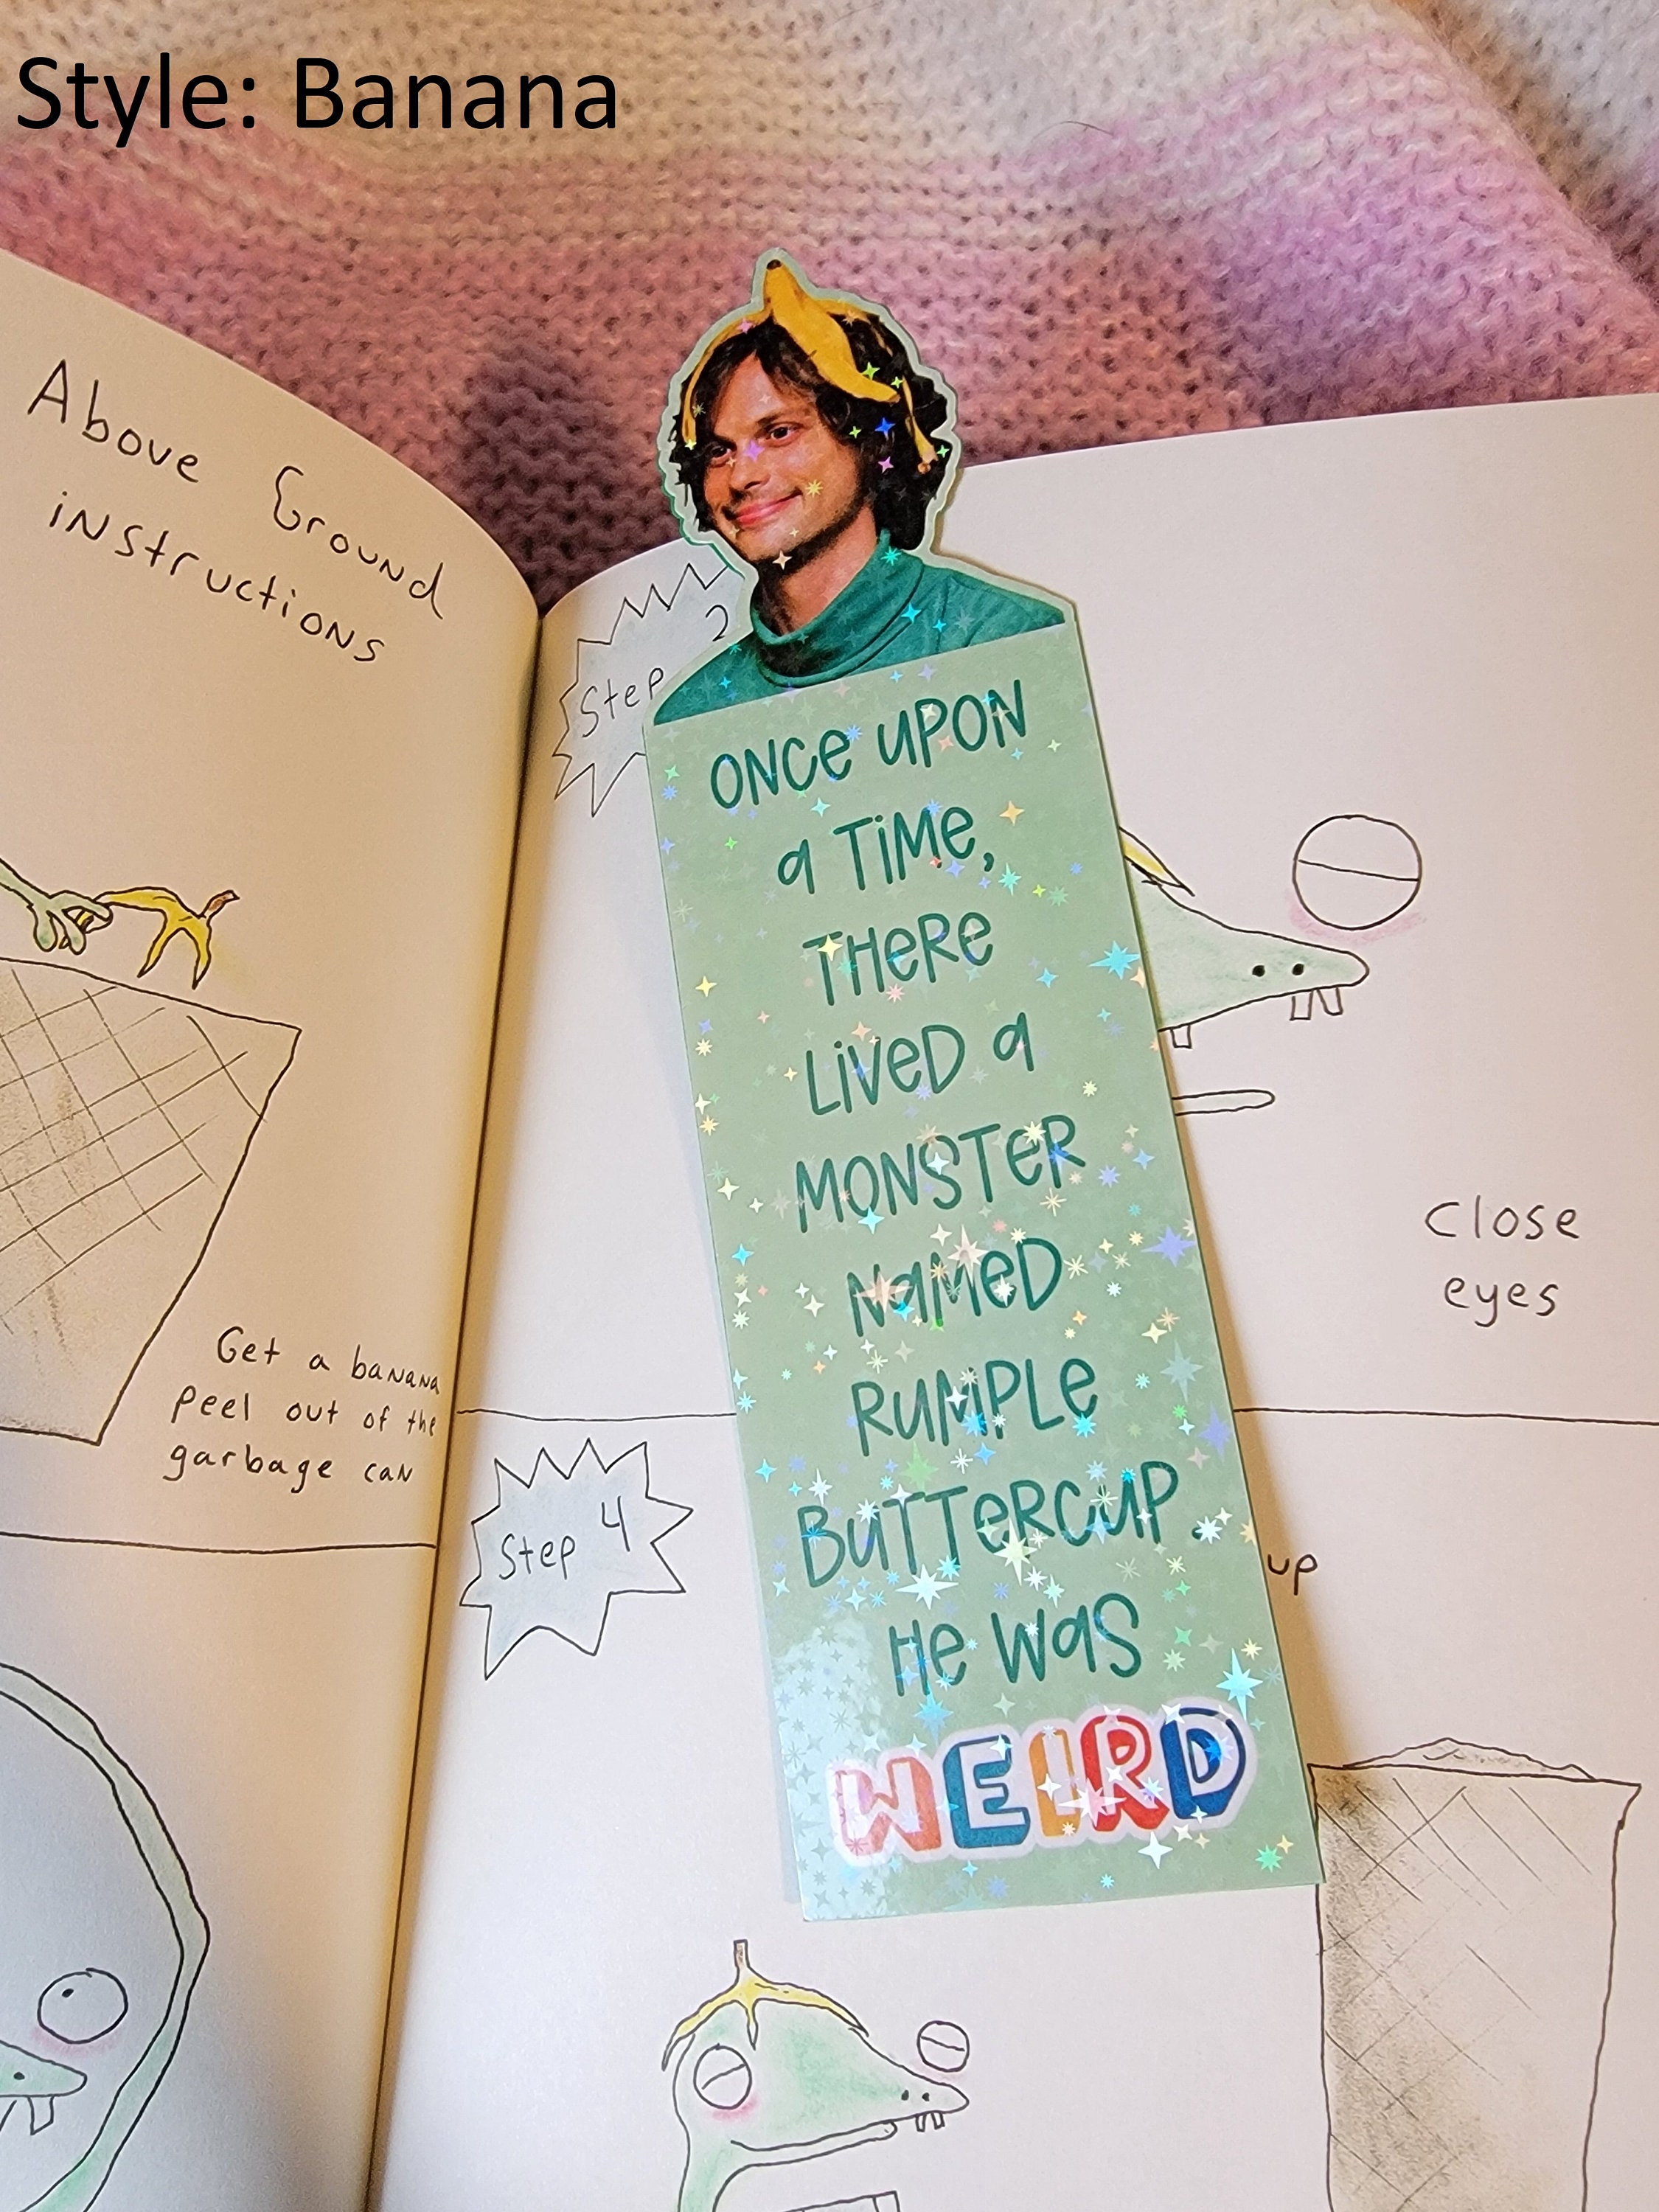 Style: Banana
Above Ground
instructions
Get a banana
peel out of the
garbage can
Step 2
close
eyes
Step 4
up
ONCE UPON
a TIME,
THERE
LIVED a
MONSTER
NAMED
RUMPLE
BUTTERCUP.
He was
WEIRD